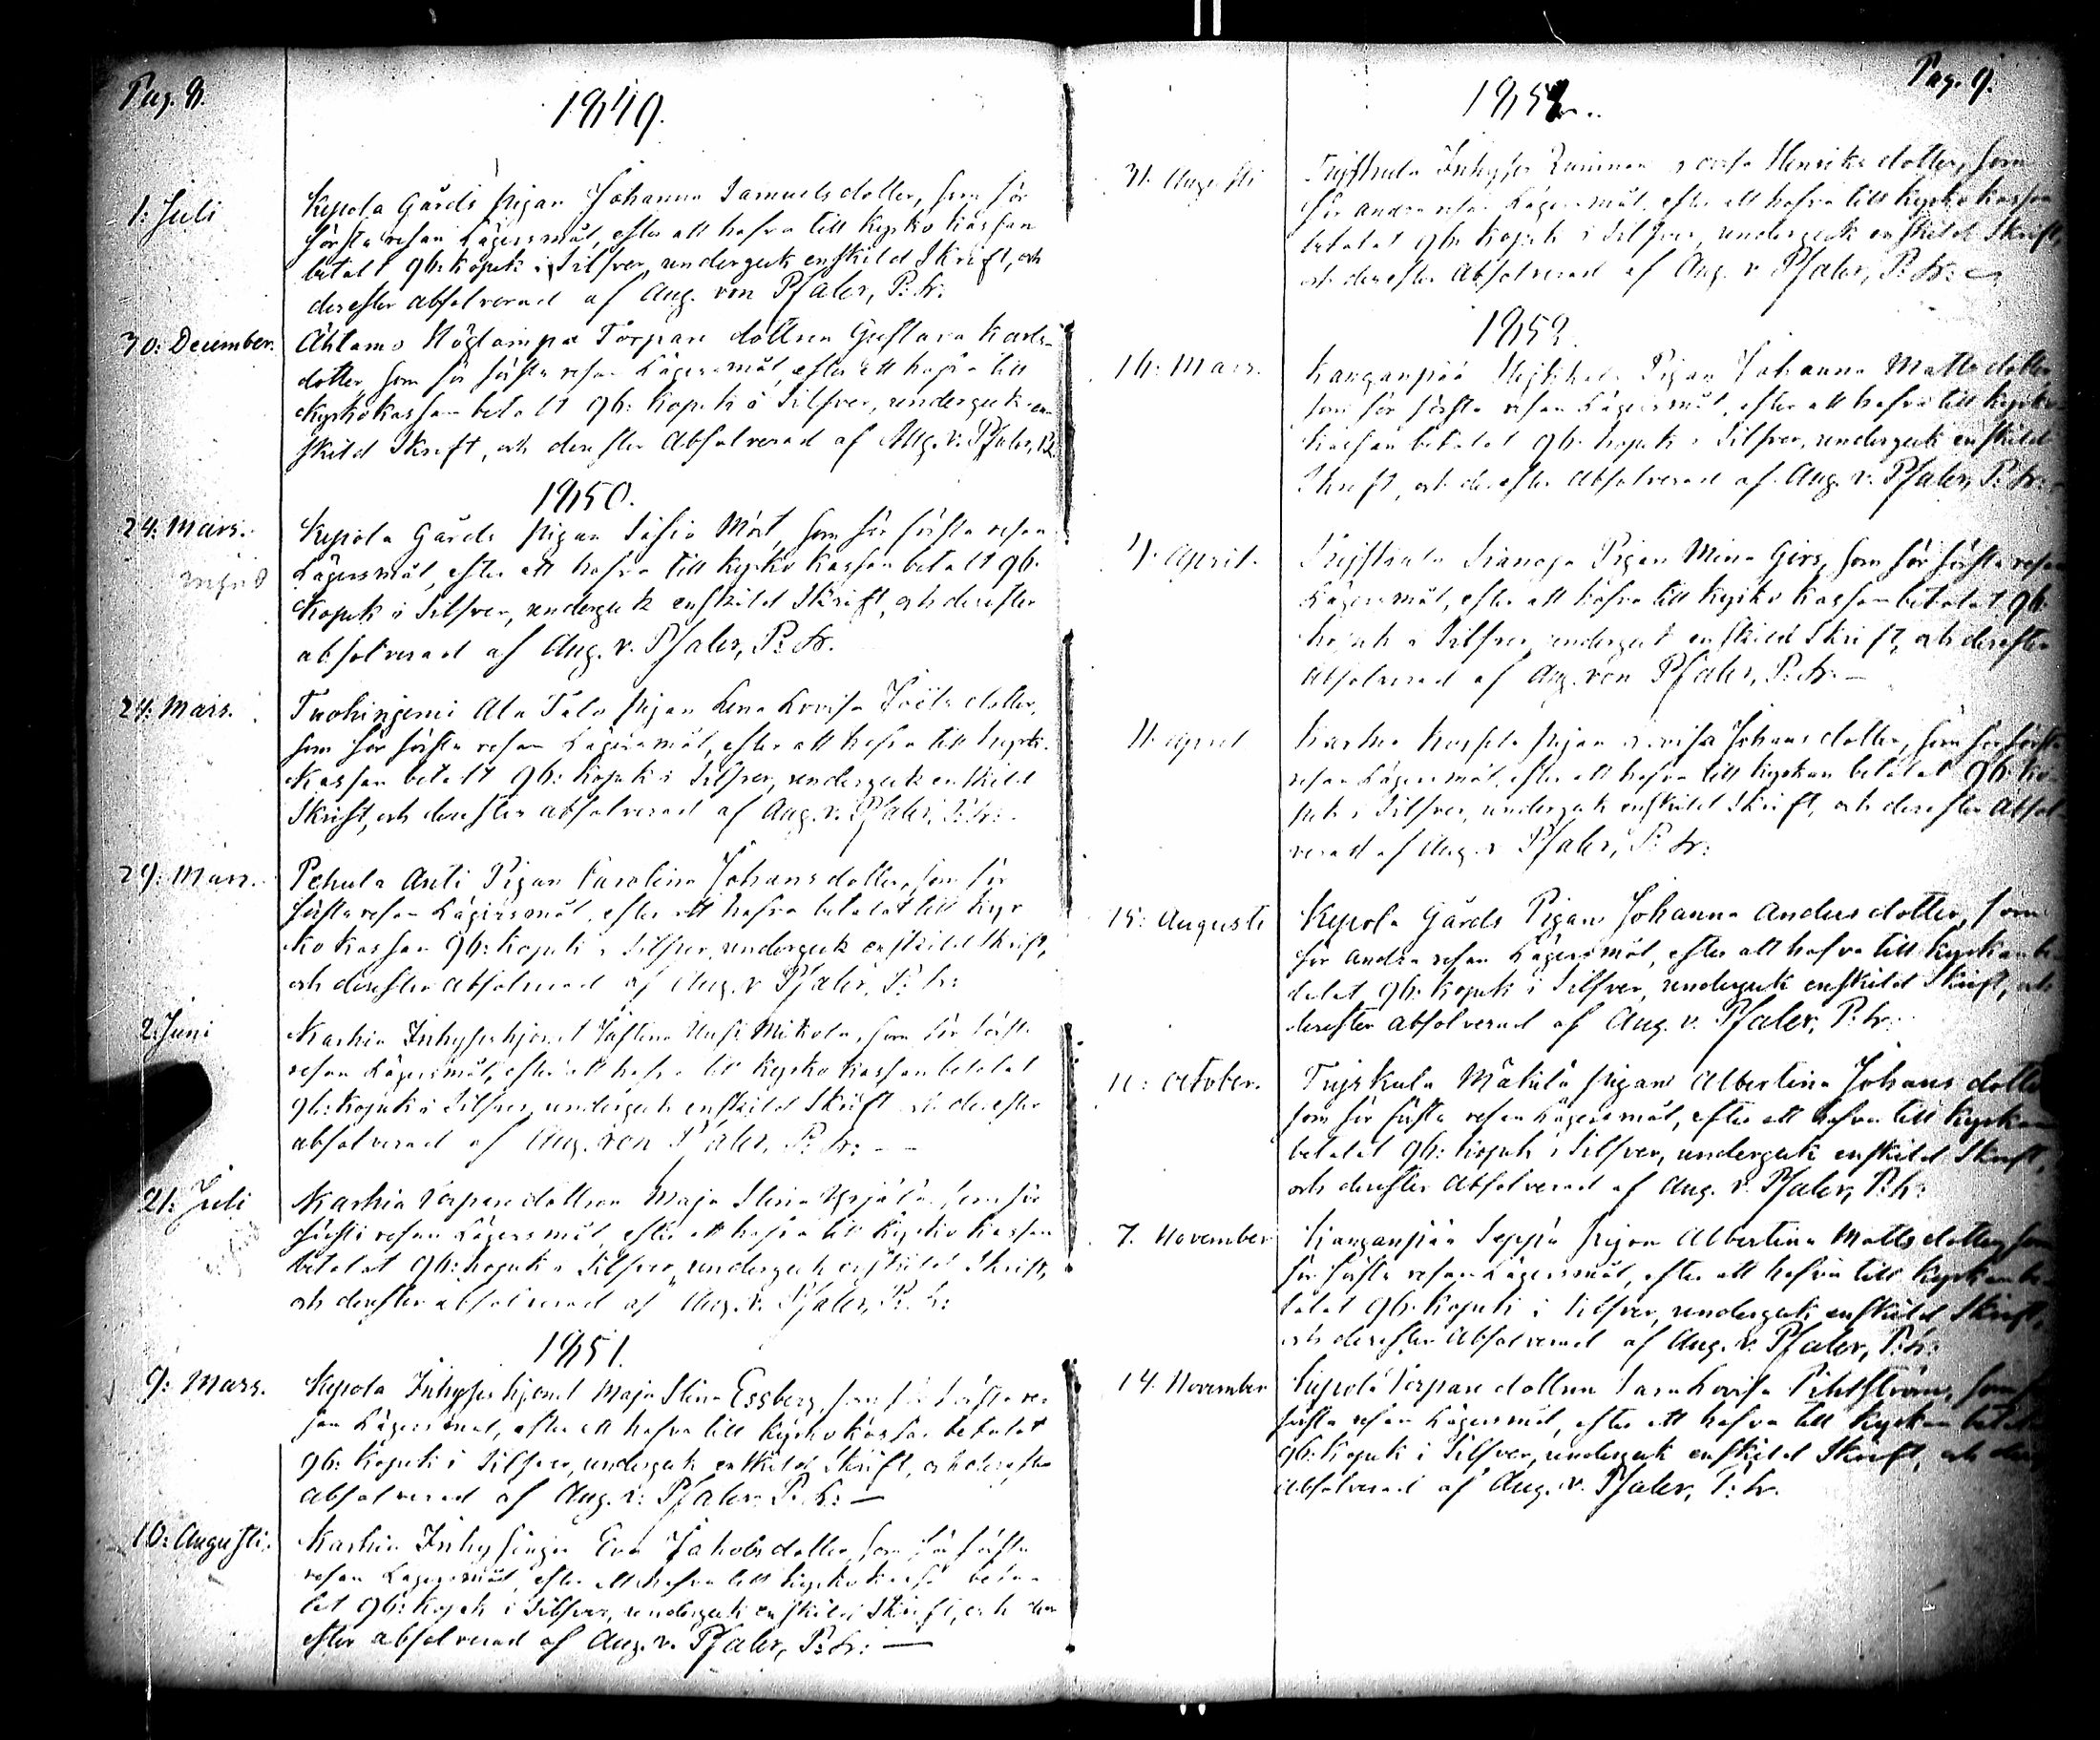 Pag. 8.
1849.
1: Juli
Kepola Gårds pigan Johanna Samuelsdotter, som för
första resan Lägersmål, efter att hafva till Kyrko kassan
betalt 96: Kopek i Silfver, undergick enskild Skrift, och
derefter absolverad af Aug. von Pfaler, P: Kr:
30: December.
Ahlamo Torpare dottren Gustava Karls-
dotter, som för första resan Lägersmål, efter att hafva till
Kyrkokassan betalt 96: Kopek i Silfver, undergick en-
skild Skrift, och derefter Absolverad af Aug. v. Pfaler,
1850.
24: Mars.
Kepola Gårds pigan Sofia Mört, som för första resan
Lägersmål, efter att hafva till Kyrko Kassan betalt 96.
Kopek i Silfver, undergick enskild Skrift, och derefter
absolverad af Aug. v. Pfaler, P: Kr.
24: Mars.
Tuohingemi Ala Talo pigan Lena Lovisa dotter,
som för första resan Lägersmål, efter att hafva till Kyrko-
Kassan betalt 96: Kopek i Silfver, undergick enskild
Skrift, och derefter absolverad af Aug. v. Pfaler, P: Kr:
29: Mars.
Pehula Anti Pigan Carolina Johansdotter, som för
första resan Lägersmål, efter att hafva betalat till Kyr
ko Kassan 96: Kopek i Silfver, undergick enskild Skrift,
och derefter absolverad af Aug. v. Pfaler, P: Kr:
2: Juni
Karhia Inhyses hjonet Justina Mikola, som för första
resan Lägersmål, efter att hafva till Kyrko kassan betalat
96: Kopek i Silfver, undergick enskild Skrift och derefter
absolverad af Aug. von Pfaler, P: Kr: --
21: Juli
Karhia Torpare dottren Maja Stina som för
första resan Lägersmål, efter att hafva till Kyrko Kassan
betalat 96: Kopek i Silfver, undergick enskild Skrift,
och derefter absolverad af Aug. v. Pfaler, P: Kr:
1851.
9: Mars.
Kepola Inhyses hjonet Maja Stina Essberg, som för första re-
san Lägersmål, efter att hafva till Kyrkokassan betalat
96: Kopek i Silfver, undergick enskild Skrift, och derefter
absolverad af Aug. v: Pfaler. P: Kr: —
10: Augusti.
Karhia Eva Jakobsdotter, som för första
resan Lägersmål, efter att hafva till Kyrkokassan beta-
lat 96: Kopek i Silfver, undergick enskild Skrift, och der
efter absolverad af Aug. v. Pfaler, P: Kr: —
Pag. 9.
31. Augusti
Inhyses Lovisa Henriksdotter, som
för andra resan Lägersmål, efter att hafva till Kyrko kassan
betalat 96: Kopek i Silfver, undergick enskild Skrift,
och derefter Absolverad af Aug. v. Pfaler, P: Kr: —
Mars.
Kanganpää Pigan Johanna Mattsdotter
som för första resan Lägersmål, efter att hafva till Kyrko-
kassan betalat 96: Kopek i Silfver, undergick enskild
Skrift, och derefter Absolverad af Aug. v. Pfaler, P: Kr:
April.
Pigan Mina Girs, som för första resan
Lägersmål, efter att hafva till Kyrko Kassan betalat 96:
Kopek i Silfver, undergick enskild Skrift, och derefter
Absolverad af Aug. von Pfaler, P: Kr: —
11. April
Karhia pigan Lovisa Johansdotter, som för första
resan Lägersmål, efter att hafva till Kyrkan betalat 96: Ko-
pek i Silfver, undergick enskild Skrift, och derefter Absol-
verad af Aug. v. Pfaler, P: Kr:
15: Augusti
Kepola Gårds Pigan Johanna Andersdotter, som
för andra resan Lägersmål, efter att hafva till Kyrkan be-
talat 96: Kopek i Silfver, undergick enskild Skrift, och
derefter absolverad af Aug. v. Pfaler, P: Kr:
October.
Tujskula Mäkilä pigan Albertina Johansdotter
som för första resan Lägersmål, efter att hafva till Kyrkan
betalat 96: Kopek i Silfver, undergick enskild Skrift,
och derefter Absolverad af Aug. v. Pfaler, P: Kr:
7. November
Kanganpää Seppä pigan Albertina Mattsdotter, som
för första resan Lägersmål, efter att hafva till Kyrkan be-
talat 96: Kopek i Silfver, undergick enskild Skrift,
och derefter Absolverad af Aug. v. Pfaler, P: Kr:
14. November
Kepola Torpare dottren Sara Lovisa som
första resan Lägersmål, efter att hafva till Kyrkan
96: Kopek i Silfver, undergick enskild Skrift, och
absolverad af Aug. v. Pfaler, P: Kr.